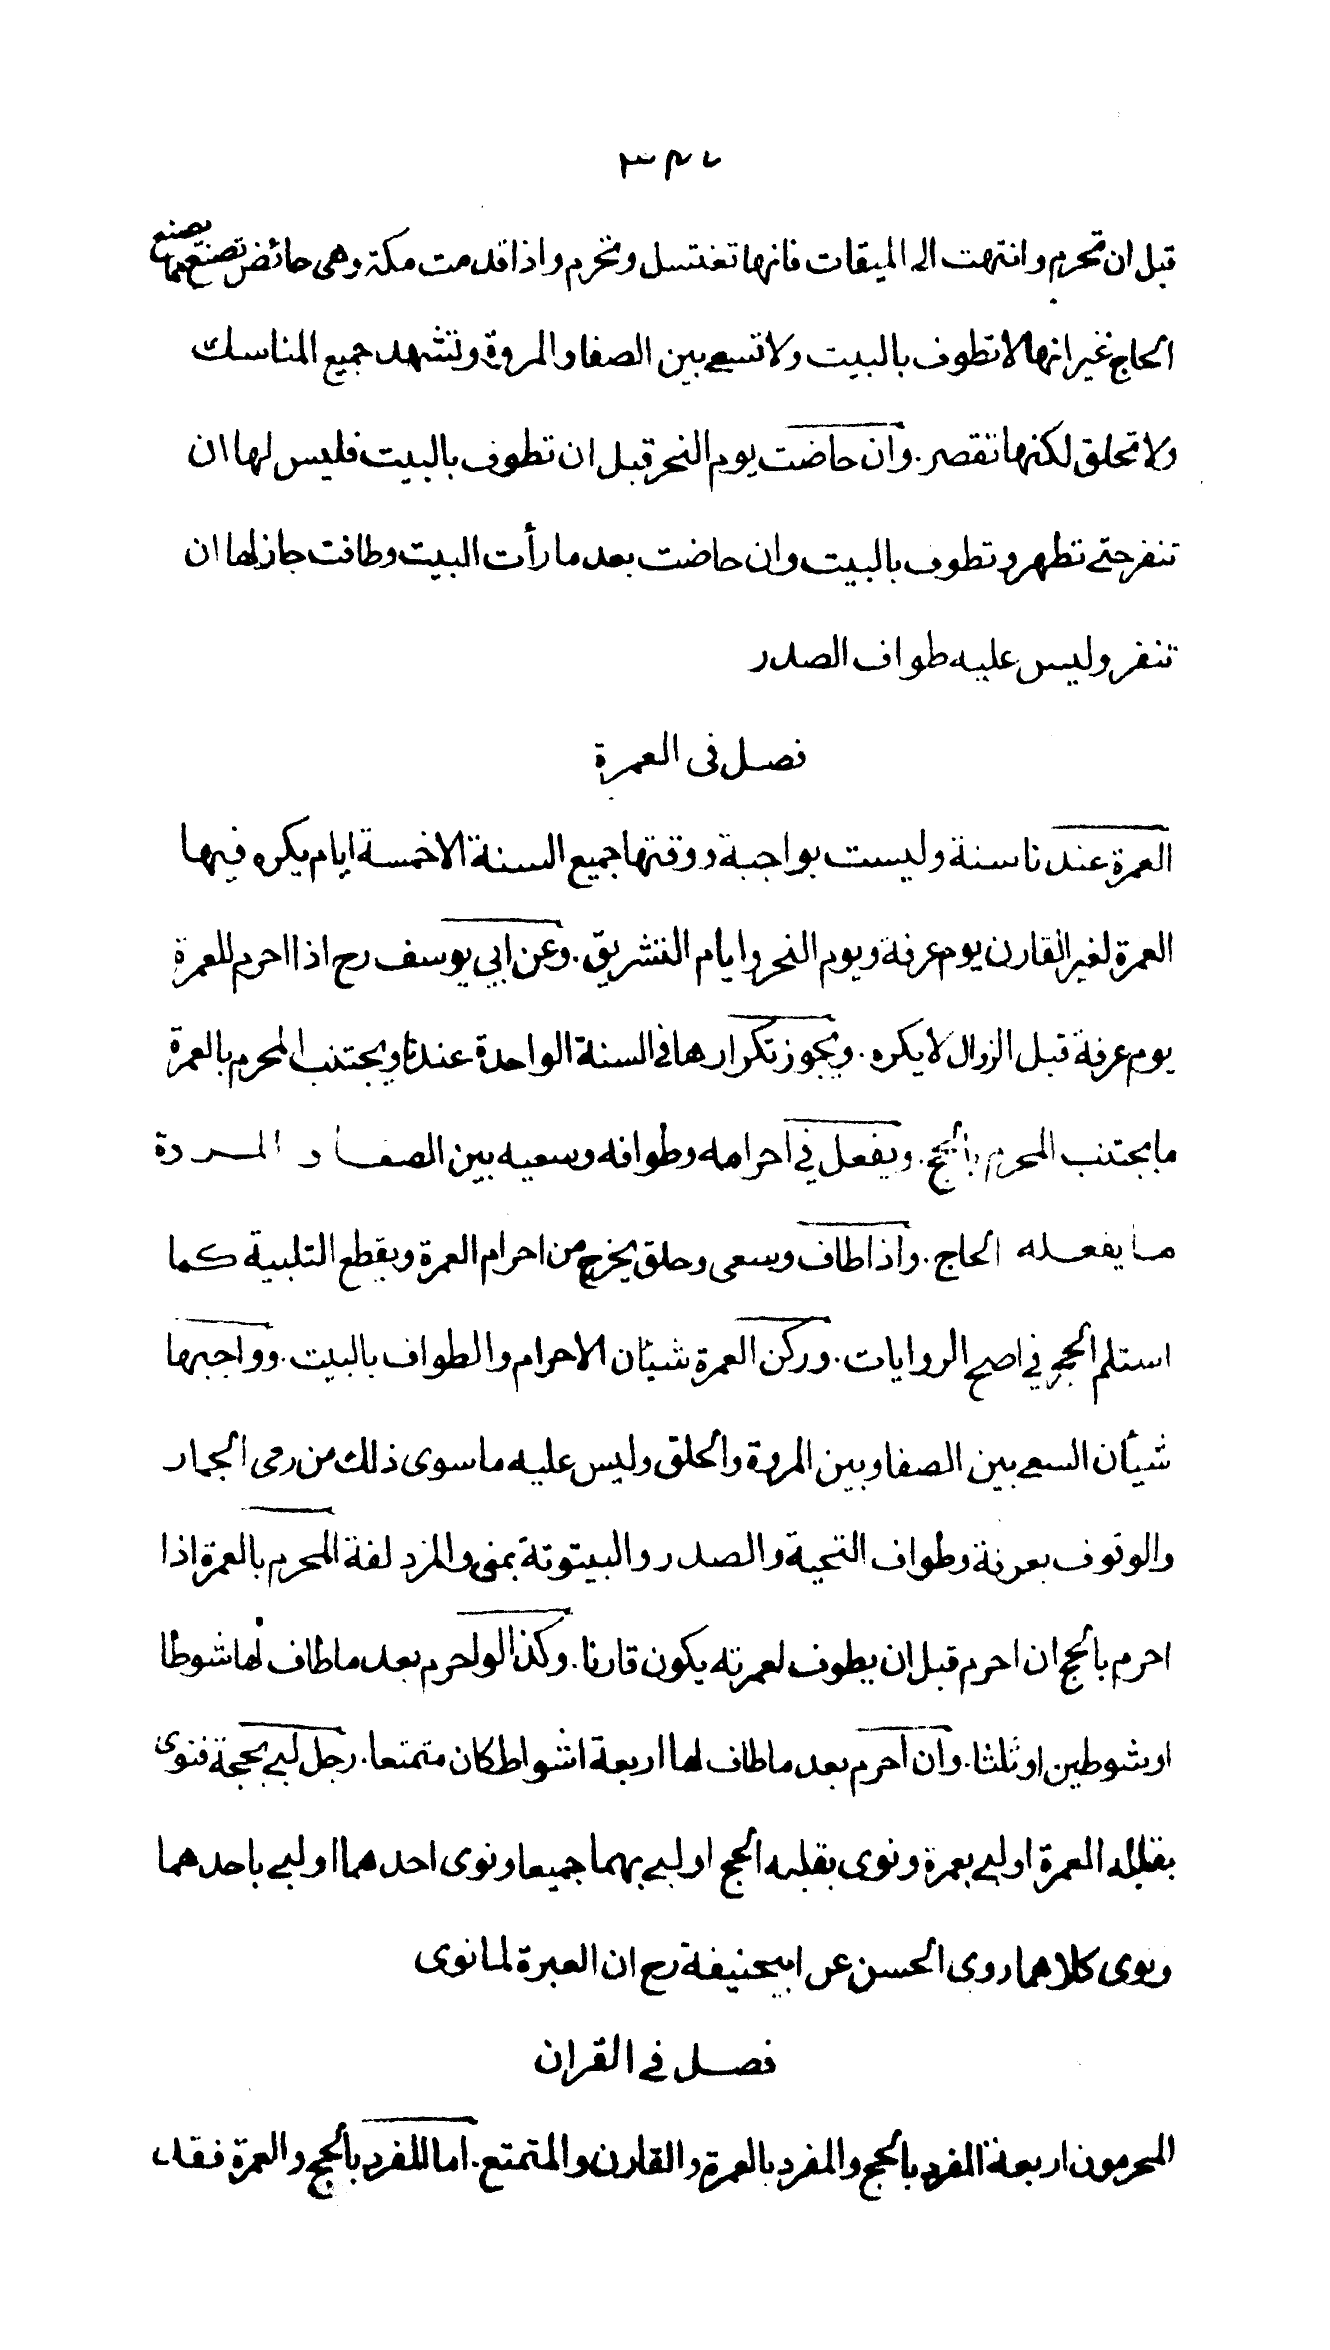 قبل ان تحرم وانتهت الى الميقات فانها تغتسل وتحرم واذا قدمت مكة وهى حائض تصنع كما يصنع
الحاج غير انها لا تطوف بالبيت ولا تسعى بين الصفا والمروة وتشهد جميع المناسك
ولا تحلق لكنها تقصر. وان حاضت يوم النحر قبل ان تطوف بالبيت فليس لها ان
تنفر حتى تطهر وتطوف بالبيت وان حاضت بعد ما رأت البيت وطافت جاز لها ان
تنفر وليس عليه طواف الصدر
فصل فى العمرة
العمرة عندنا سنة وليست بواجبة ووقتها جميع السنة الا خمسة ايام يكره فيها
العمرة لغير القارن يوم عرفة ويوم النحر وايام التشريق. وعن ابي يوسف رح اذا احرم للعمرة
يوم عرفة قبل الزوال لا يكره. ويجوز تكرارها فى السنة الواحدة عندنا ويجتنب المحرم بالعمرة
ما يجتنب المحرم بالحج. ويفعل في احرامه وطوافه وسعيه بين الصفا و المروة
ما يفعله الحاج. واذا طاف وسعى وحلق يخرج من احرام العمرة ويقطع التلبية كما
استلم الحجر في اصح الروايات. وركن العمرة شيئان الاحرام والطواف بالبيت. وواجبها
شيأن السعى بين الصفا وبين المروة والحلق وليس عليه ما سوى ذلك من رمى الجمار
والوقوف بعرفة وطواف التحية والصدر والبيتوتة بمنى والمزدلفة المحرم بالعمرة اذا
احرم بالحج ان احرم قبل ان يطوف لعمرته يكون قارنا. وكذا لو احرم بعد ما طاف لها شوطا
او شوطين او ثلثا. وان احرم بعد ما طاف لها اربعة اشواط كان متمتعا. رجل لبى بحجة فنوى
بقلبه العمرة او لبى بعمرة ونوى بقلبه الحج او لبى بهما جميعا ونوى احدهما او لبى باحدهما
ونوى كلاهما روى الحسن عن ابيحنيفة رح ان العبرة لما نوى
فصل فى القران
المحرمون اربعة المفرد بالحج والمفرد بالعمرة والقارن والمتمتع. اما المفرد بالحج والعمرة فقد